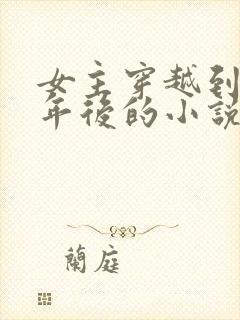 女主穿越到
年後的小說
蘭庭